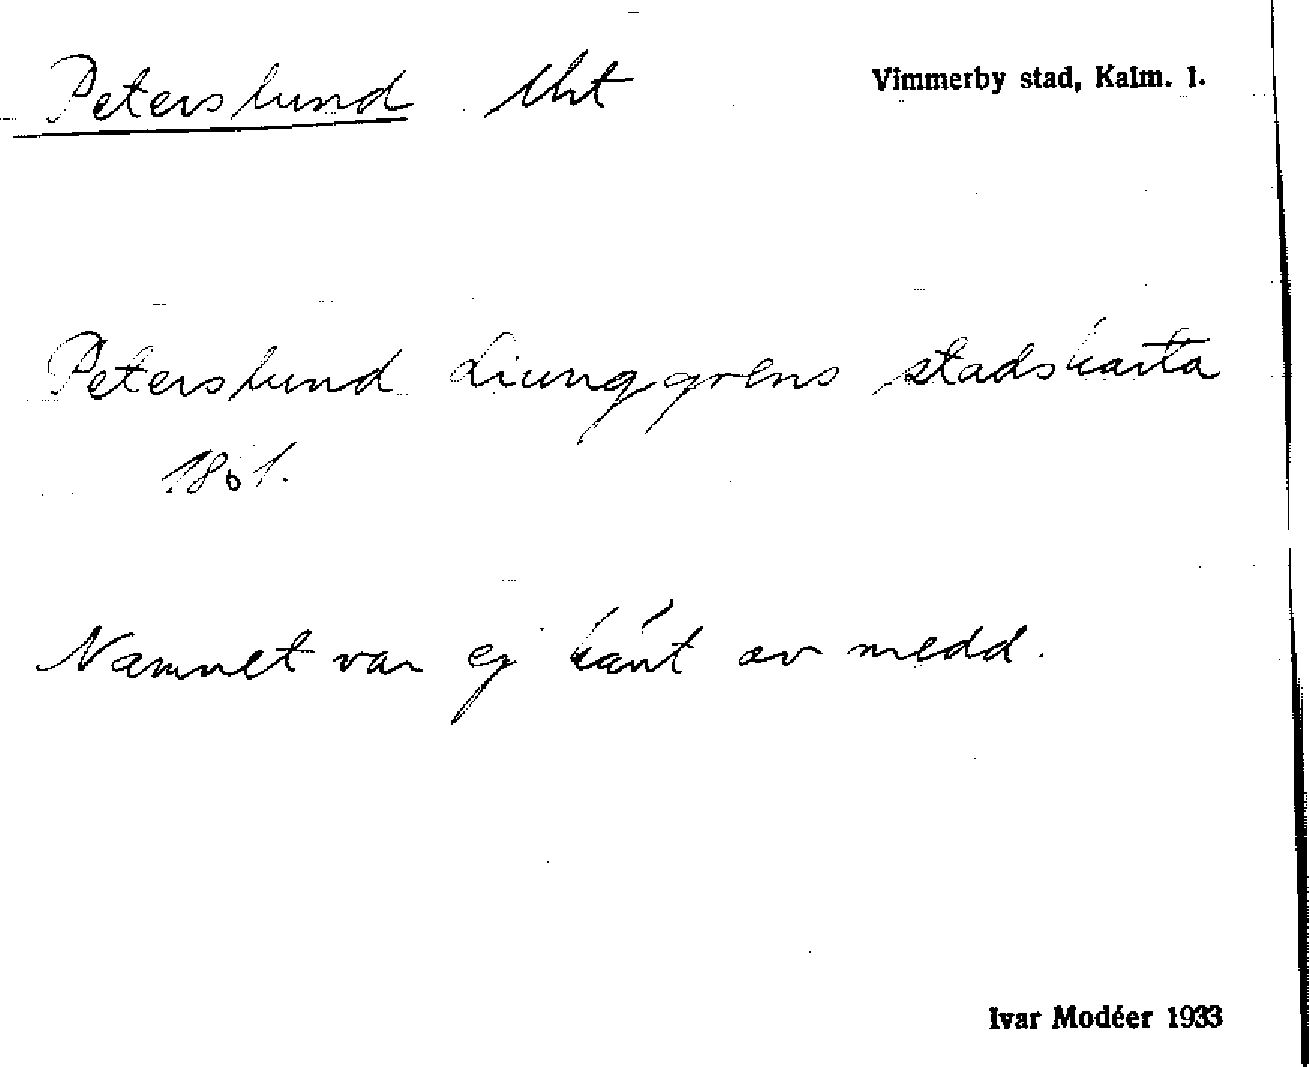 Peterslund lht Vimmerby stad, Kalm. l.
Peterslund Liunggrens stadskarta
1861.
Namnet var ej känt av medd.
Ivar Modéer 1933